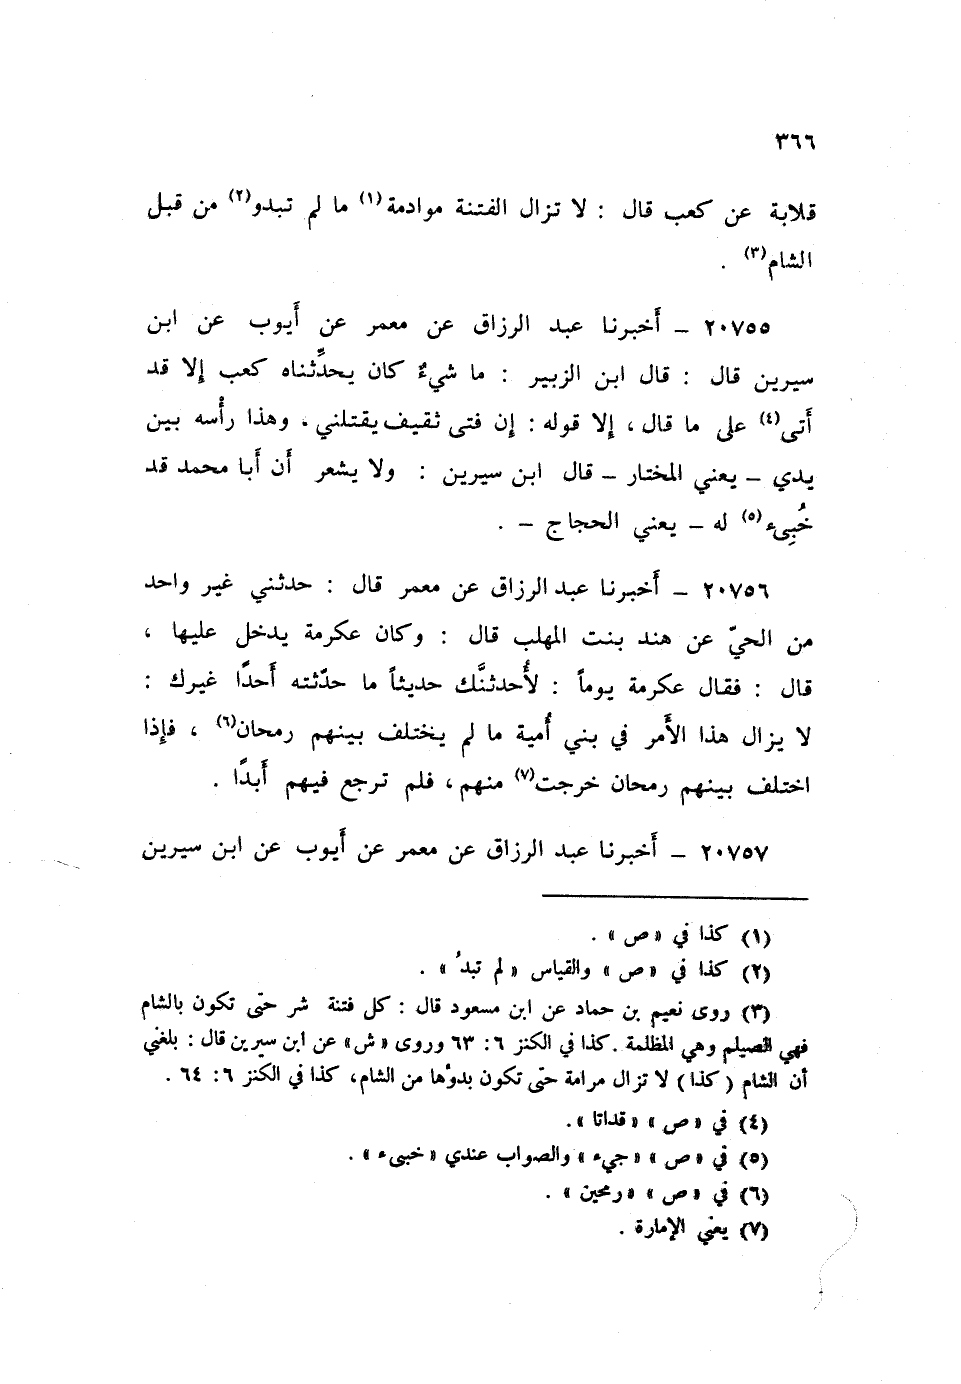 ٣٦٦
قلابة عن كعب قال : لا تزال الفتنة موادمة(١) ما لم تبدو(٢) من قبل
الشام(٣) .
٢٠٧٥٥ – أَخبرنا عبد الرزاق عن معمر عن أَيوب عن ابن
سيرين قال : قال ابن الزبير : ما شيءٌ كان يحدِّثناه كعب إلا قد
أَتى(٤) على ما قال ، إلا قوله : إن فتى ثقيف يقتلني ، وهذا رأْسه بين
يدي – يعني المختار – قال ابن سيرين : ولا يشعر أَن أَبا محمد قد
خُبِىء(٥) له – يعني الحجاج – .
٢٠٧٥٦ – أَخبرنا عبد الرزاق عن معمر قال : حدثني غير واحد
من الحيّ عن هند بنت المهلب قال : وكان عكرمة يدخل عليها ،
قال : فقال عكرمة يوماً : لأُحدثنَّك حديثاً ما حدّثته أَحدًا غيرك :
لا يزال هذا الأَمر في بني أُمية ما لم يختلف بينهم رمحان(٦) ، فإذا
اختلف بينهم رمحان خرجت(٧) منهم ، فلم ترجع فيهم أَبدًا .
٢٠٧٥٧ – أَخبرنا عبد الرزاق عن معمر عن أَيوب عن ابن سيرين
(١) كذا في « ص » .
(٢) كذا في « ص » والقياس « لم تبدُ » .
(٣) روى نعيم بن حماد عن ابن مسعود قال : كل فتنة شر حتى تكون بالشام
فهي الصيلم وهي المظلمة . كذا في الكنز ٦ : ٦٣ وروى « ش » عن ابن سيرين قال : بلغني
أن الشام ( كذا ) لا تزال مرامة حتى تكون بدؤها من الشام، كذا في الكنز ٦ : ٦٤ .
(٤) في « ص » « قداتا » .
(٥) في « ص » « جيء » والصواب عندي « خبىء » .
(٦) في « ص » « رمحين » .
(٧) يعني الإمارة .